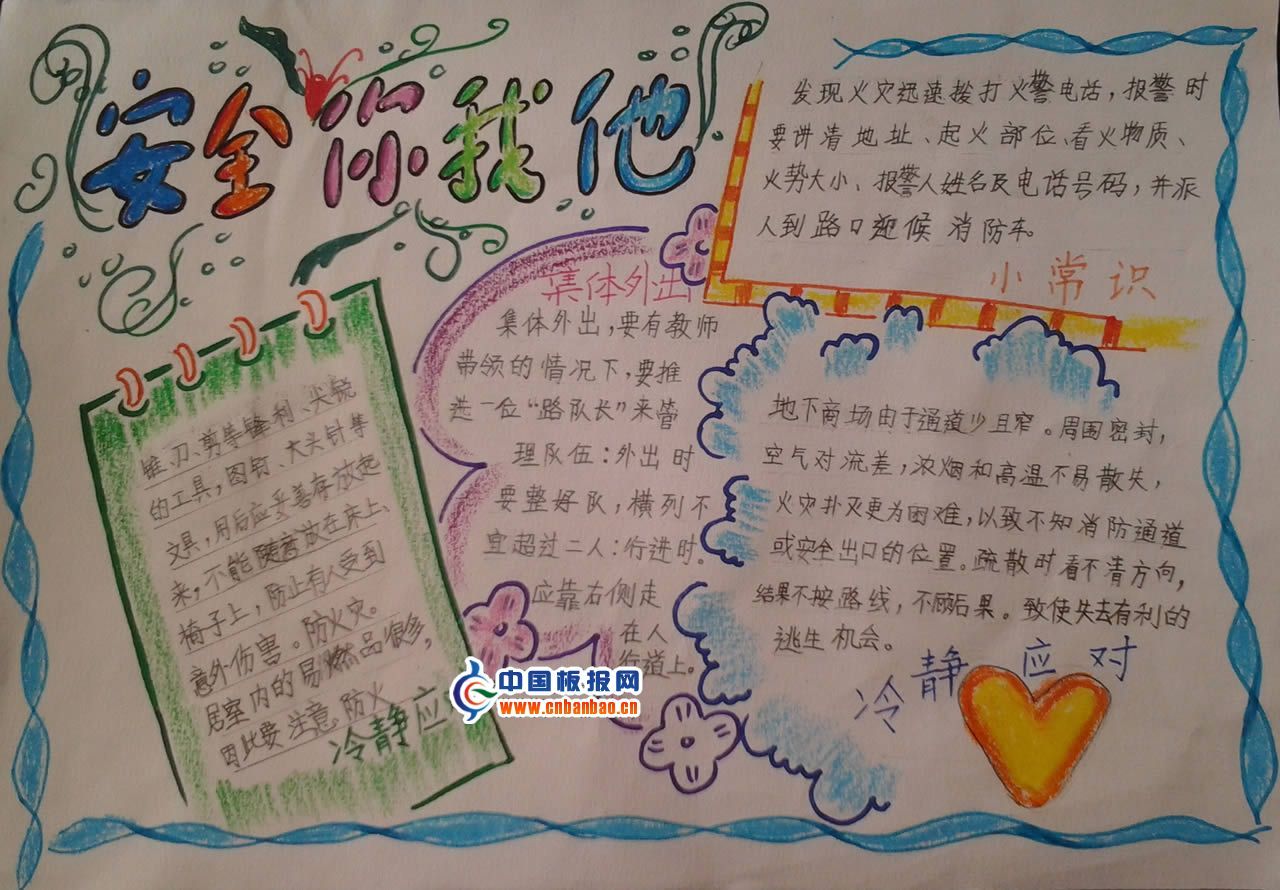 安全你我他
发现火灾迅速拨打火警电话，报警时
要讲清地址、起火部位、看火物质、
火势大小、报警人姓名及电话号码，并派
人到路口迎候消防车。
小常识
集体外出
集体外出，要有教师
带领的情况下，要推
选一位“路队长”来管
理队伍：外出时
要整好队，横列不
宜超过二人：行进时。
应靠右侧走
在人
行道上。
锥、刀、剪等锋利、尖锐
的工具，图钉、大头针等
文具，用后应妥善存放起
来，不能随意放在床上、
椅子上，防止有人受到
意外伤害。防火灾。
居室内的易燃品很多，
因此要注意防火
冷静应
地下商场由于通道少且窄。周围密封，
空气对流差，浓烟和高温不易散失，
火灾扑灭更为困难，以致不知消防通道
或安全出口的位置。疏散时看不清方向，
结果不按路线，不顾后果。致使失去有利的
逃生机会。
冷静应对
中国板报网
www.cnbanbao.cn